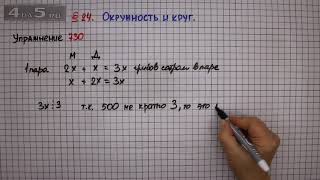 4on5.ru
§ 24. Окружность и круг.
Упражнение 730
М Д
1 пара 2x + x = 3x грибов собрали в паре
x + 2x = 3x
3x : 3 т.к. 500 не кратно 3, то это